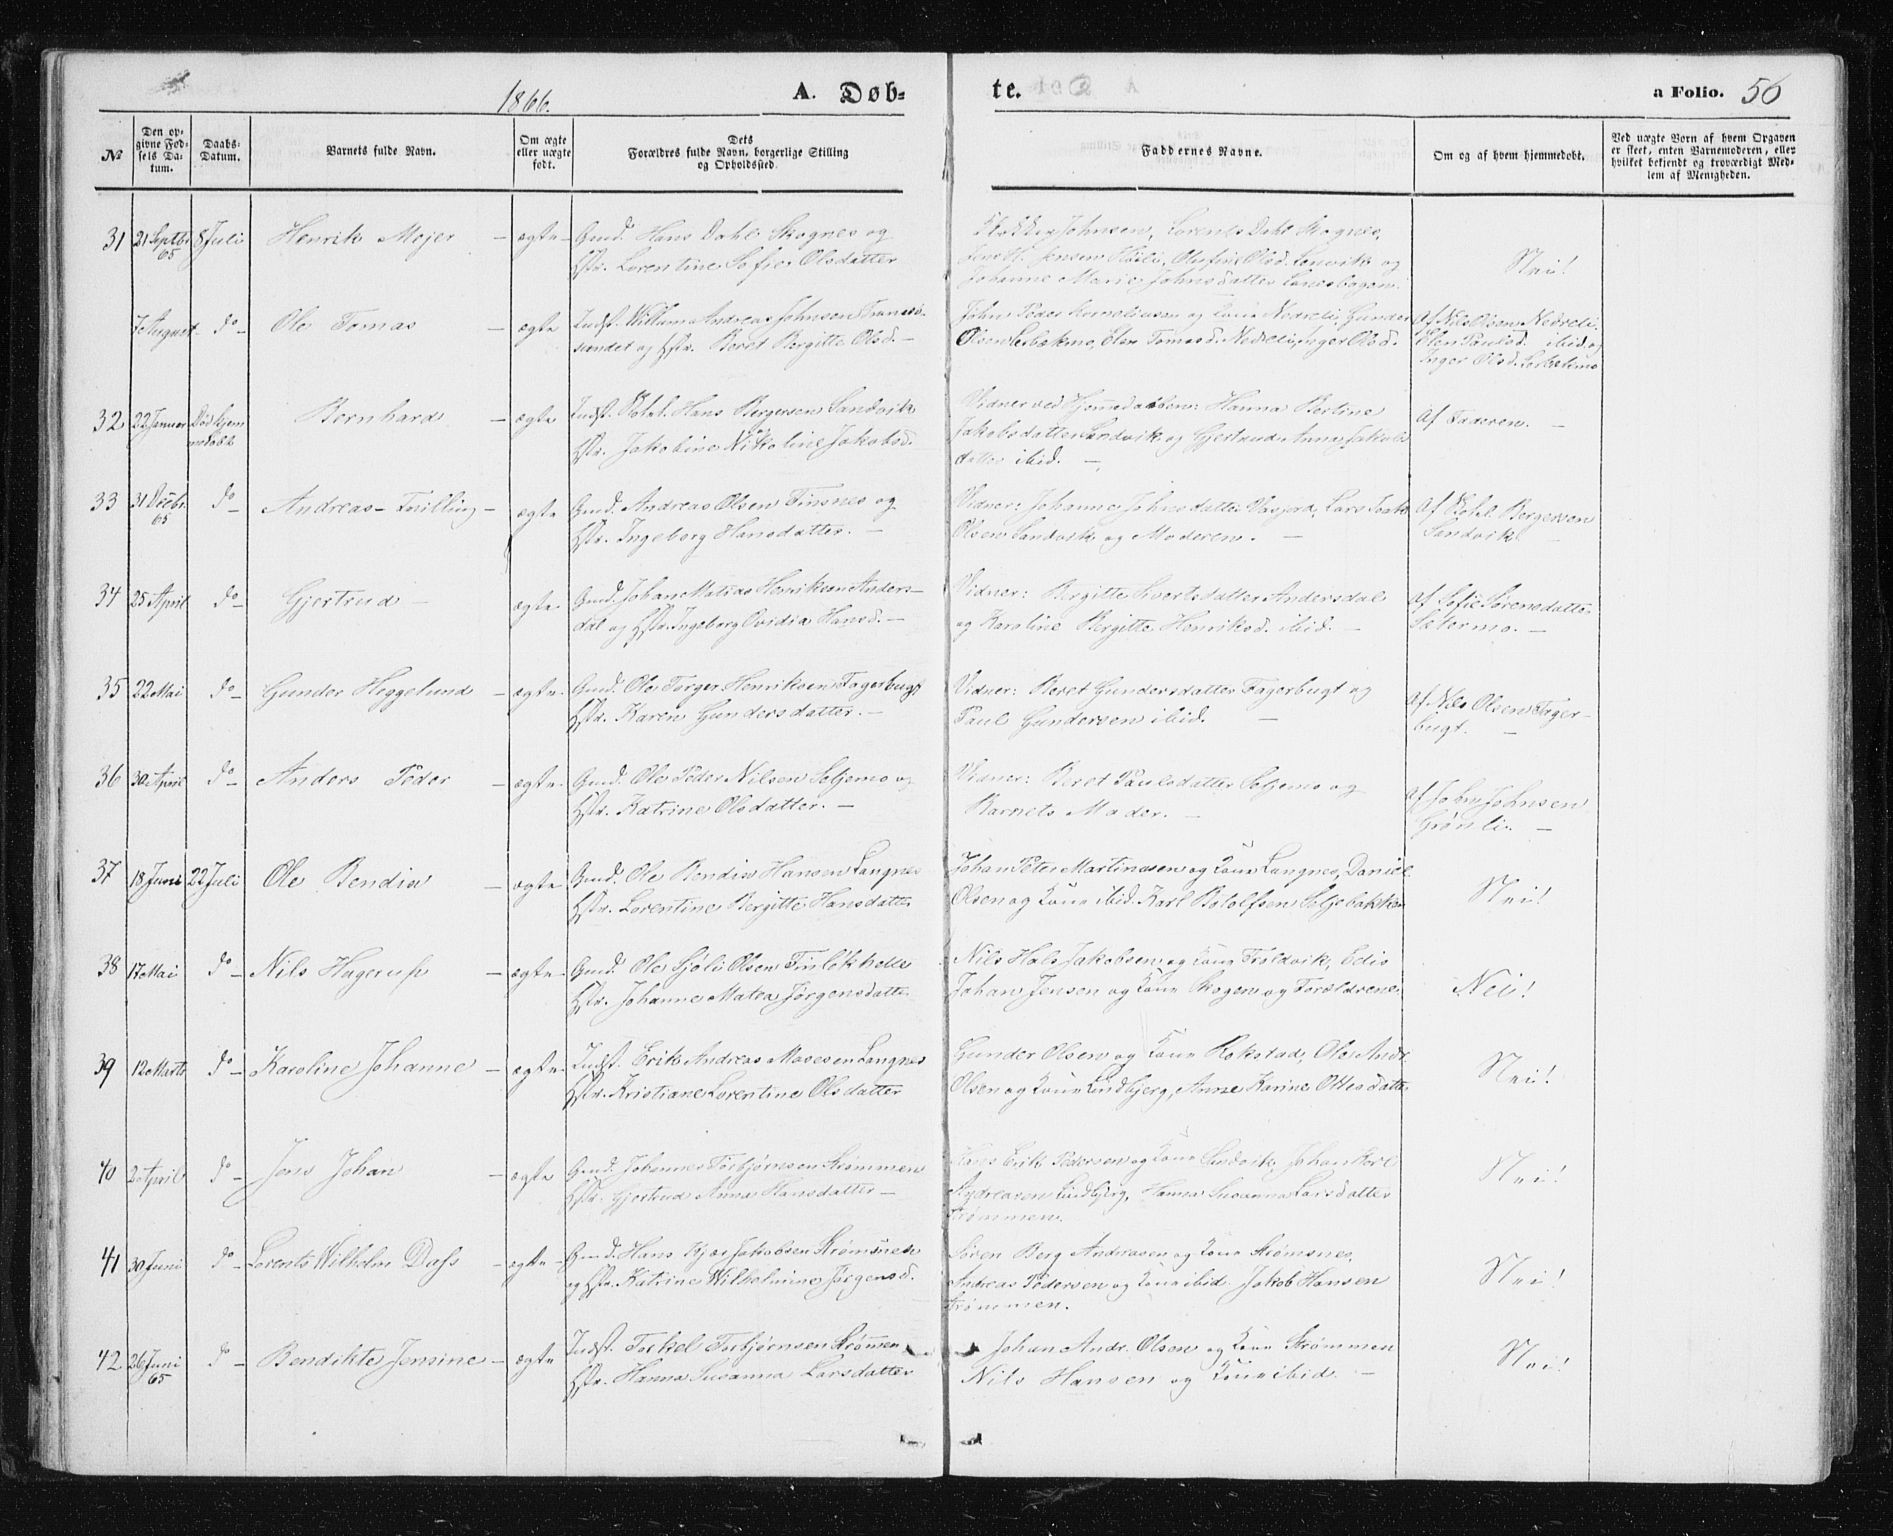 1866.
A. Døb-
te.
a Folio. 56
№
Den op-
givne Fød-
sels Da-
tum.
Daabs-
Datum.
Barnets fulde Navn.
Om ægte
eller uægte
født.
Dets
Forældres fulde Navn, borgerlige Stilling
og Opholdssted.
Faddernes Navne.
Om og af hvem hjemmedøbt.
Ved uægte Børn af hvem Opgaven
er skeet, enten Barnemoderen, eller
hvilket bekjendt og troværdigt Med-
lem af Menigheden.
31 21 Septbr 65 8 Juli Henrik Mejer – ægte – Gmd. Hans Dahl Skognes og
Hstr. Lorentine Sofie Olsdatter
Johnsen, Lorents Dahl Skognes,
Lene H. Jensen Olufine Olsd. Lenvik og
Johanne Marie Johnsdatter
Nei!
7 August – do – Ole Tomas – ægte Indst. Willum Andreas Johnsen Franso-
sundet og Hstr. Beret Bergitte Olsd. –
John Peder Korneliusen og Kone Nedreli, Gunder
Olsen Lebækmo, Elen Tomasd. Nedreli, Inger Olsd.
Af Nils Olsen Nedreli,
Elen Paulsd. ibid. og
Inger Olsd.
32 22 Januar Død hjem
medøbt Bernhard – ægte Indst. Hans Bergersen Sandvik
Hstr. Jakobine Nikoline Jakobsd.
Vidner ved Hjemmedaaben: Hanna Bertine
Jakobsdatter Sandvik og Gjertrud Anna Jakobs
datter ibid. –
Af Faderen. –
33 31 Decbr. 65 do – Andreas – Tvilling – ægte Gmd. Andreas Olsen Finsnes og
Hstr. Ingeborg Hansdatter. –
Vidner: Johanna Johnsdatter Vasjord, Lars
Olsen Sandvik og Moderen. –
Af Bergersen
Sandvik.
34 25 April do – Gjertrud – ægte Gmd. Johan Matias Henriksen Anders-
dal og Hstr. Ingeborg Ovidia Hansd. –
Vidner: Bergitte Sivertsdatter Andersdal
og Karoline Bergitte Henriksd. ibid. –
af Sofie Sørensdatter
Sætermo. –
35 22 Mai do – Gunder Heggelund – ægte Gmd. Ole Torger Henriksen Fagerbugt
Hstr. Karen Gundersdatter. –
Vidner: Beret Gundersdatter Fagerbugt og
Paul Gundersen ibid. –
Af Nils Olsen Fager-
bugt. –
36 30 April do – Anders Peder – ægte Gmd. Ole Peder Nilsen Seljemo og
Hstr. Katrine Olsdatter. –
Vidner: Beret Paulsdatter Seljemo og
Barnets Moder. –
af John Johnsen
Grønli. –
37 18 Juni 22 Juli Ole Bendix – ægte Gmd. Ole Bendix Hansen Langnes
Hstr. Lorentine Bergitte Hansdatter
Johan Peter Martinusen og Kone Langnes, Daniel
Olsen og Kone ibid. Karl Botolfsen Seljebakken
Nei!
38 17 Mai do – Nils Hagerup – ægte – Gmd. Ole Sjøli Olsen
Hstr. Johanne Matea Jørgensdatter
Nils Hals Jakobsen og Kone Troldvik, Edis
Johan Jensen og Kone Skogen og Forældrene.
Nei!
39 12 Marts do – Karoline Johanne – ægte – Indst. Erik Andreas Mosesen Langnes
Hstr. Kristiane Lorentine Olsdatter
Gunder Olsen og Kone Rokstad, Ole Andr.
Olsen og Kone Lindbjerg, Anne Karine Ottesdatter
Nei!
40 2 April do – Jens Johan – ægte Gmd. Johannes Torbjørnsen Strømmen
Hstr. Gjertrud Anna Hansdatter –
Hans Erik Pedersen og Kone Sandvik, Johan Karl
Andreasen Lindbjerg, Hanna Susanna Larsdatter
Strømmen.
Nei!
41 30 Juni do – Lorents Wilhelm Dass – ægte – Gmd. Hans Kjær Jakobsen Strømsnes
og Hstr. Katrine Wilhelmine Jørgensd.
Søren Berg Andreasen og Kone Strømsnes,
Andreas Pedersen og Kone ibid. Jakob Hansen
Strømmen.
Nei!
42 26 Juni 65 do – Bendikte Jensine – ægte Indst. Torkel Torbjørnsen Strømmen
Hstr. Hanna Susanna Larsdatter
Johan Andr. Olsen og Kone Strømmen
Nils Hansen og Kone ibid. –
Nei!